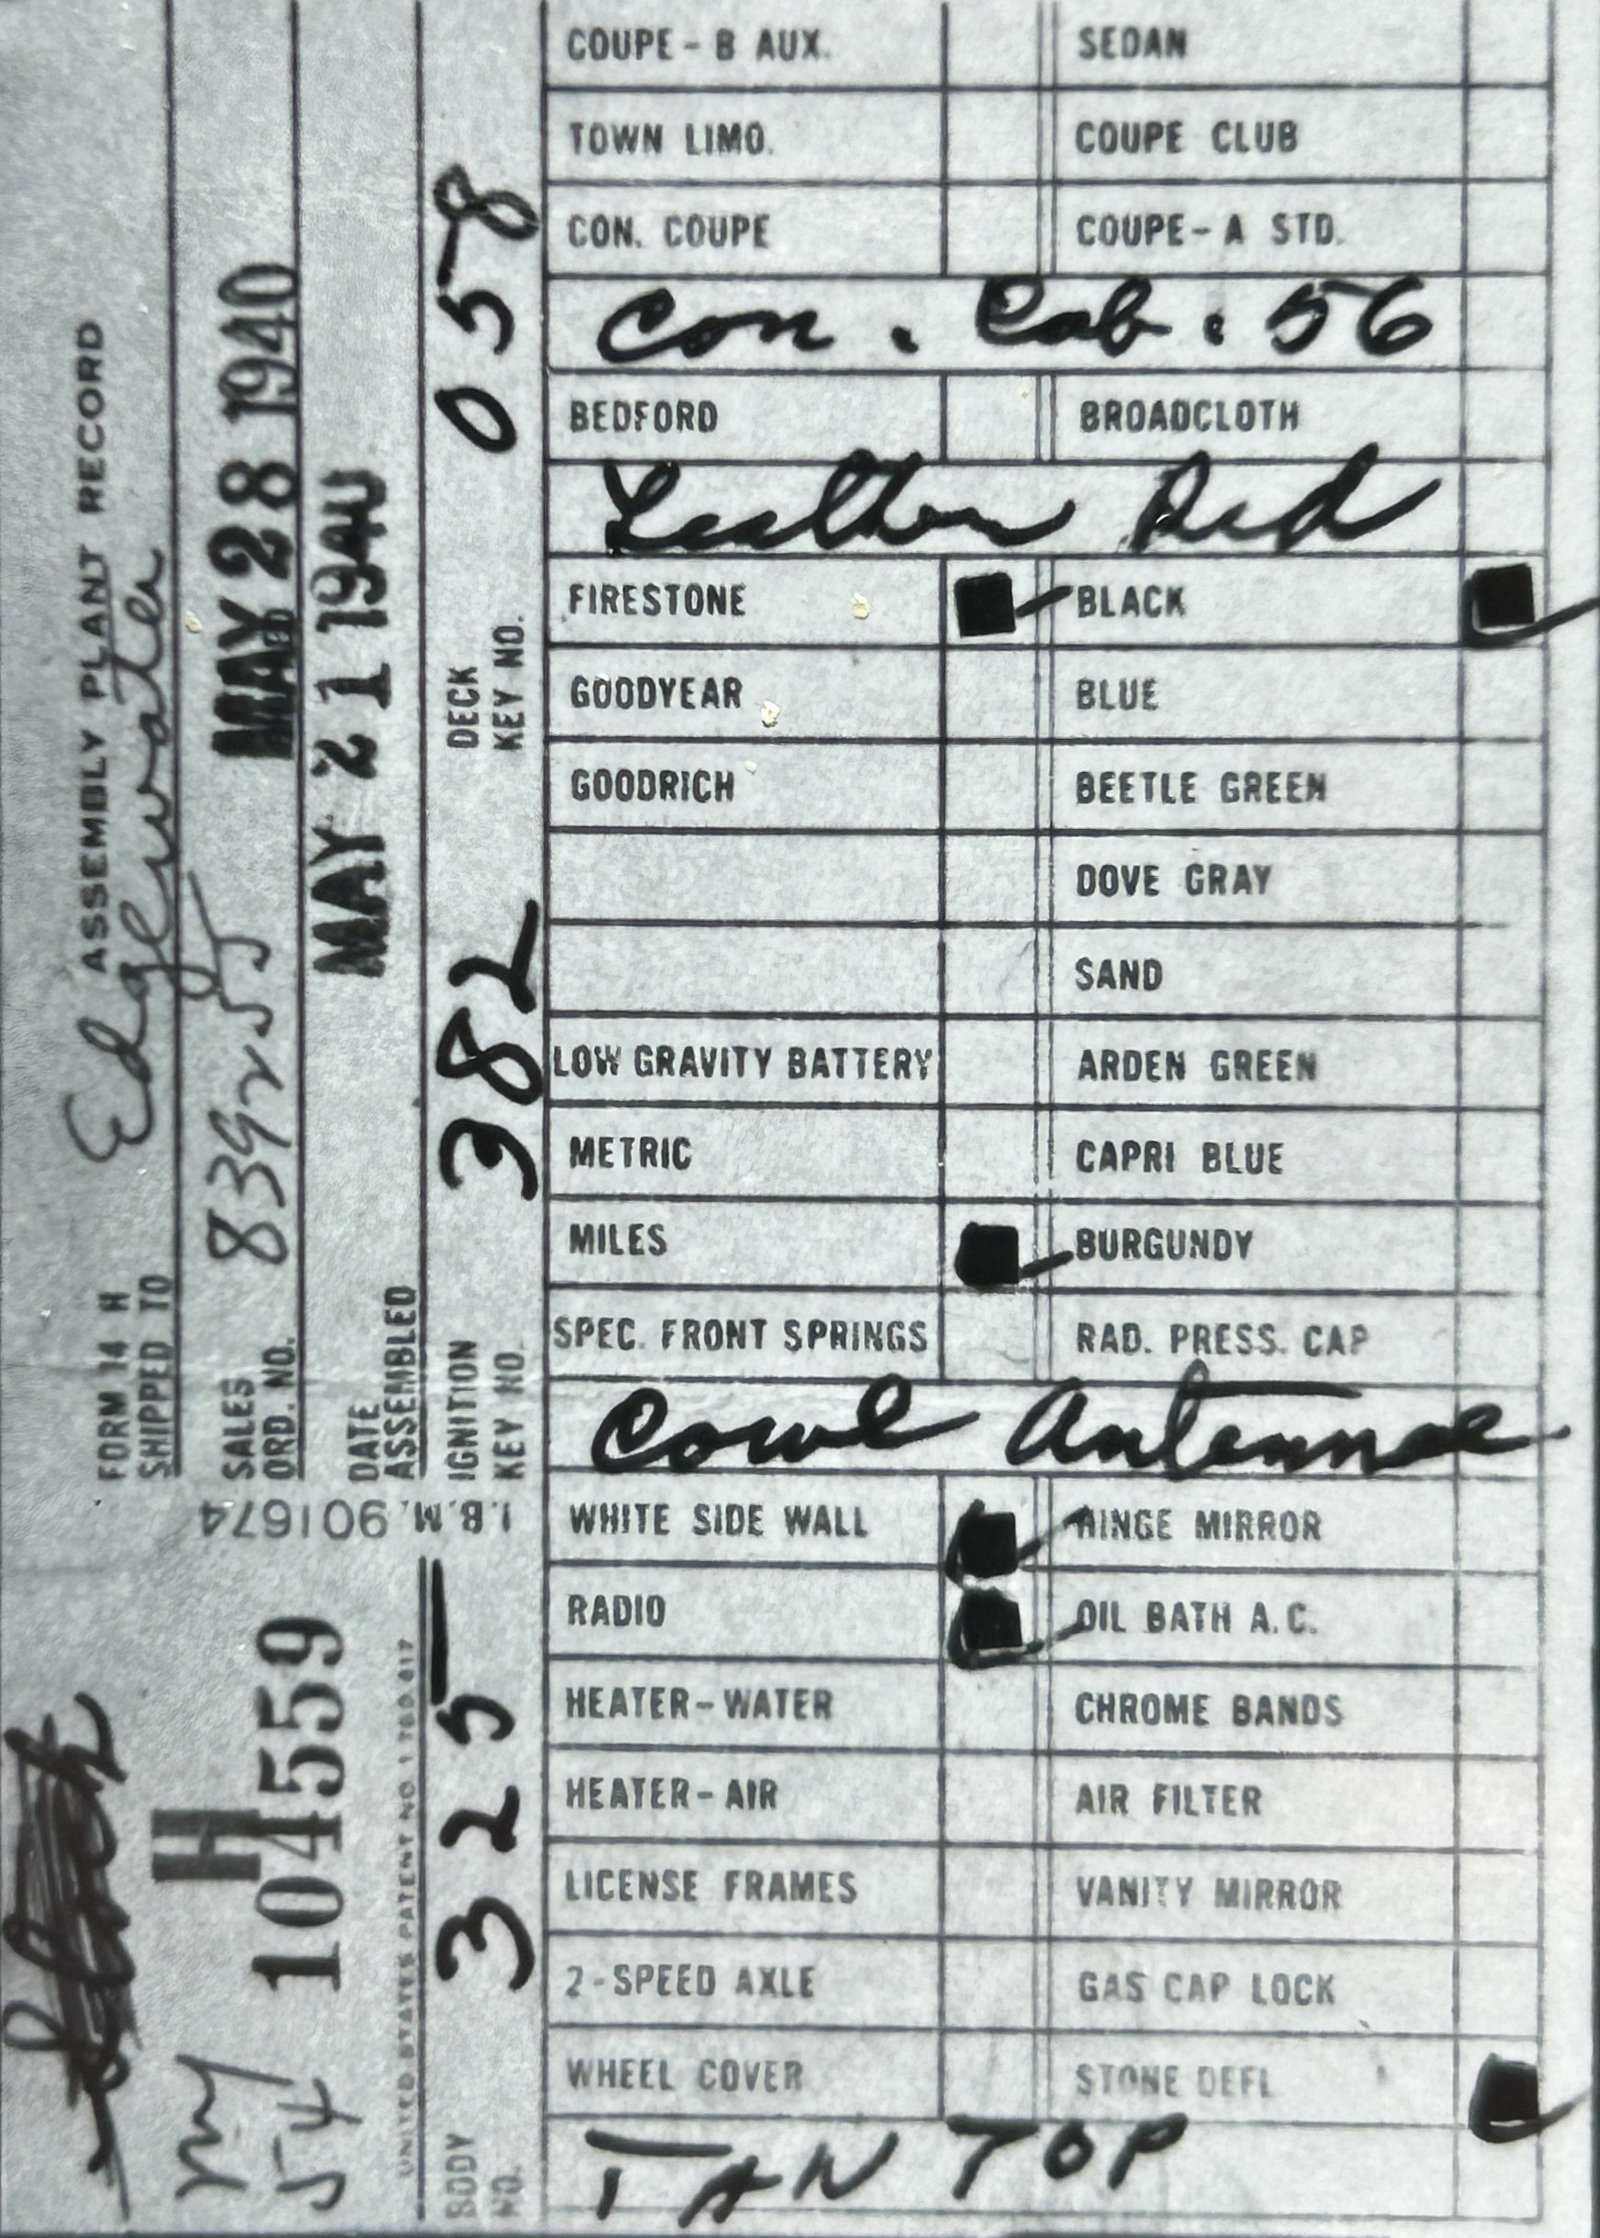 FORM 14 H ASSEMBLY PLANT RECORD
SHIPPED TO Edgewater
SALES
ORD. NO. 839255 MAY 28 1940
DATE
ASSEMBLED MAY 21 1940
IGNITION
KEY NO. 382
DECK
KEY NO. 058
I.B.M. 901674
H
104559
54
UNITED STATES PATENT NO 1 780 617
BODY
NO. 325
COUPE - B AUX. SEDAN
TOWN LIMO. COUPE CLUB
CON. COUPE COUPE - A STD.
Con. Cab. 56
BEDFORD BROADCLOTH
Leather Red
FIRESTONE BLACK
GOODYEAR BLUE
GOODRICH BEETLE GREEN
DOVE GRAY
SAND
LOW GRAVITY BATTERY ARDEN GREEN
METRIC CAPRI BLUE
MILES BURGUNDY
SPEC. FRONT SPRINGS RAD. PRESS. CAP
Cowl Antennae
WHITE SIDE WALL HINGE MIRROR
RADIO OIL BATH A.C.
HEATER - WATER CHROME BANDS
HEATER - AIR AIR FILTER
LICENSE FRAMES VANITY MIRROR
2 - SPEED AXLE GAS CAP LOCK
WHEEL COVER STONE DEFL
TAN TOP